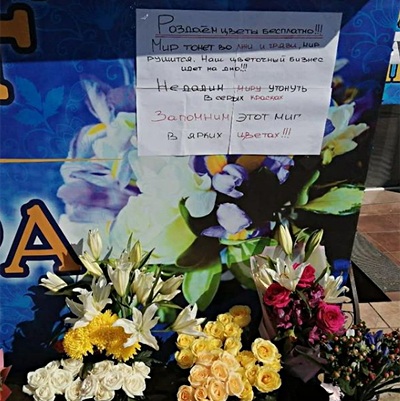 Роздаём цветы бесплатно!!!
Мир тонет во лжи и грязи, мир
рушится. Наш цветочный бизнес
идет на дно!!!
Не дадим миру утонуть
в серых красках
Запомним этот миг
в ярких цветах!!!
РА